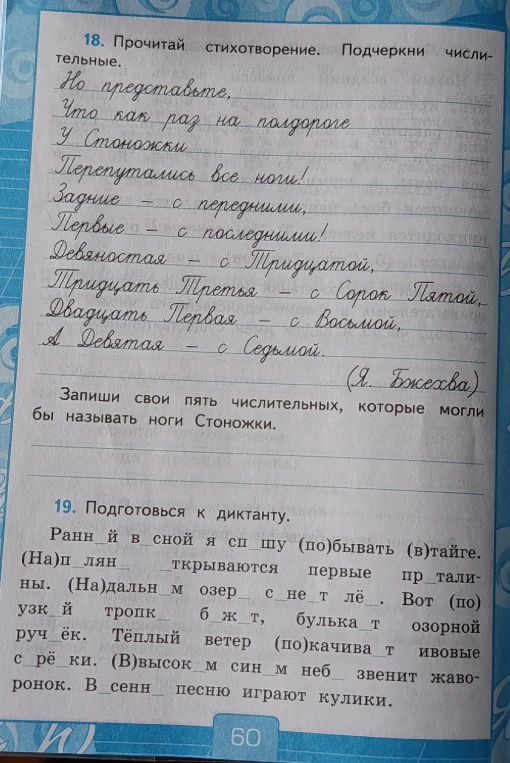 18. Прочитай стихотворение. Подчеркни числи-
тельные.
Но представьте,
Что как раз на полдороге
У Стоножки
Перепутались все ноги!
Задние – с передними,
Первые – с последними!
Девяностая – с Тридцатой,
Тридцать Третья – с Сорок Пятой,
Двадцать Первая – с Восьмой,
А Девятая – с Седьмой.
(Я. Бжехва)
Запиши свои пять числительных, которые могли
бы называть ноги Стоножки.
19. Подготовься к диктанту.
Ранн_й в_сной я сп_шу (по)бывать (в)тайге.
(На)п_лян_ _ткрываются первые пр_тали-
ны. (На)дальн_м озер_ с_не_т лё_. Вот (по)
узк_й тропк_ б_ж_т, булька_т озорной
руч_ёк. Тёплый ветер (по)качива_т ивовые
с_рё_ки. (В)высок_м син_м неб_ звенит жаво-
ронок. В_сенн_ песню играют кулики.
60